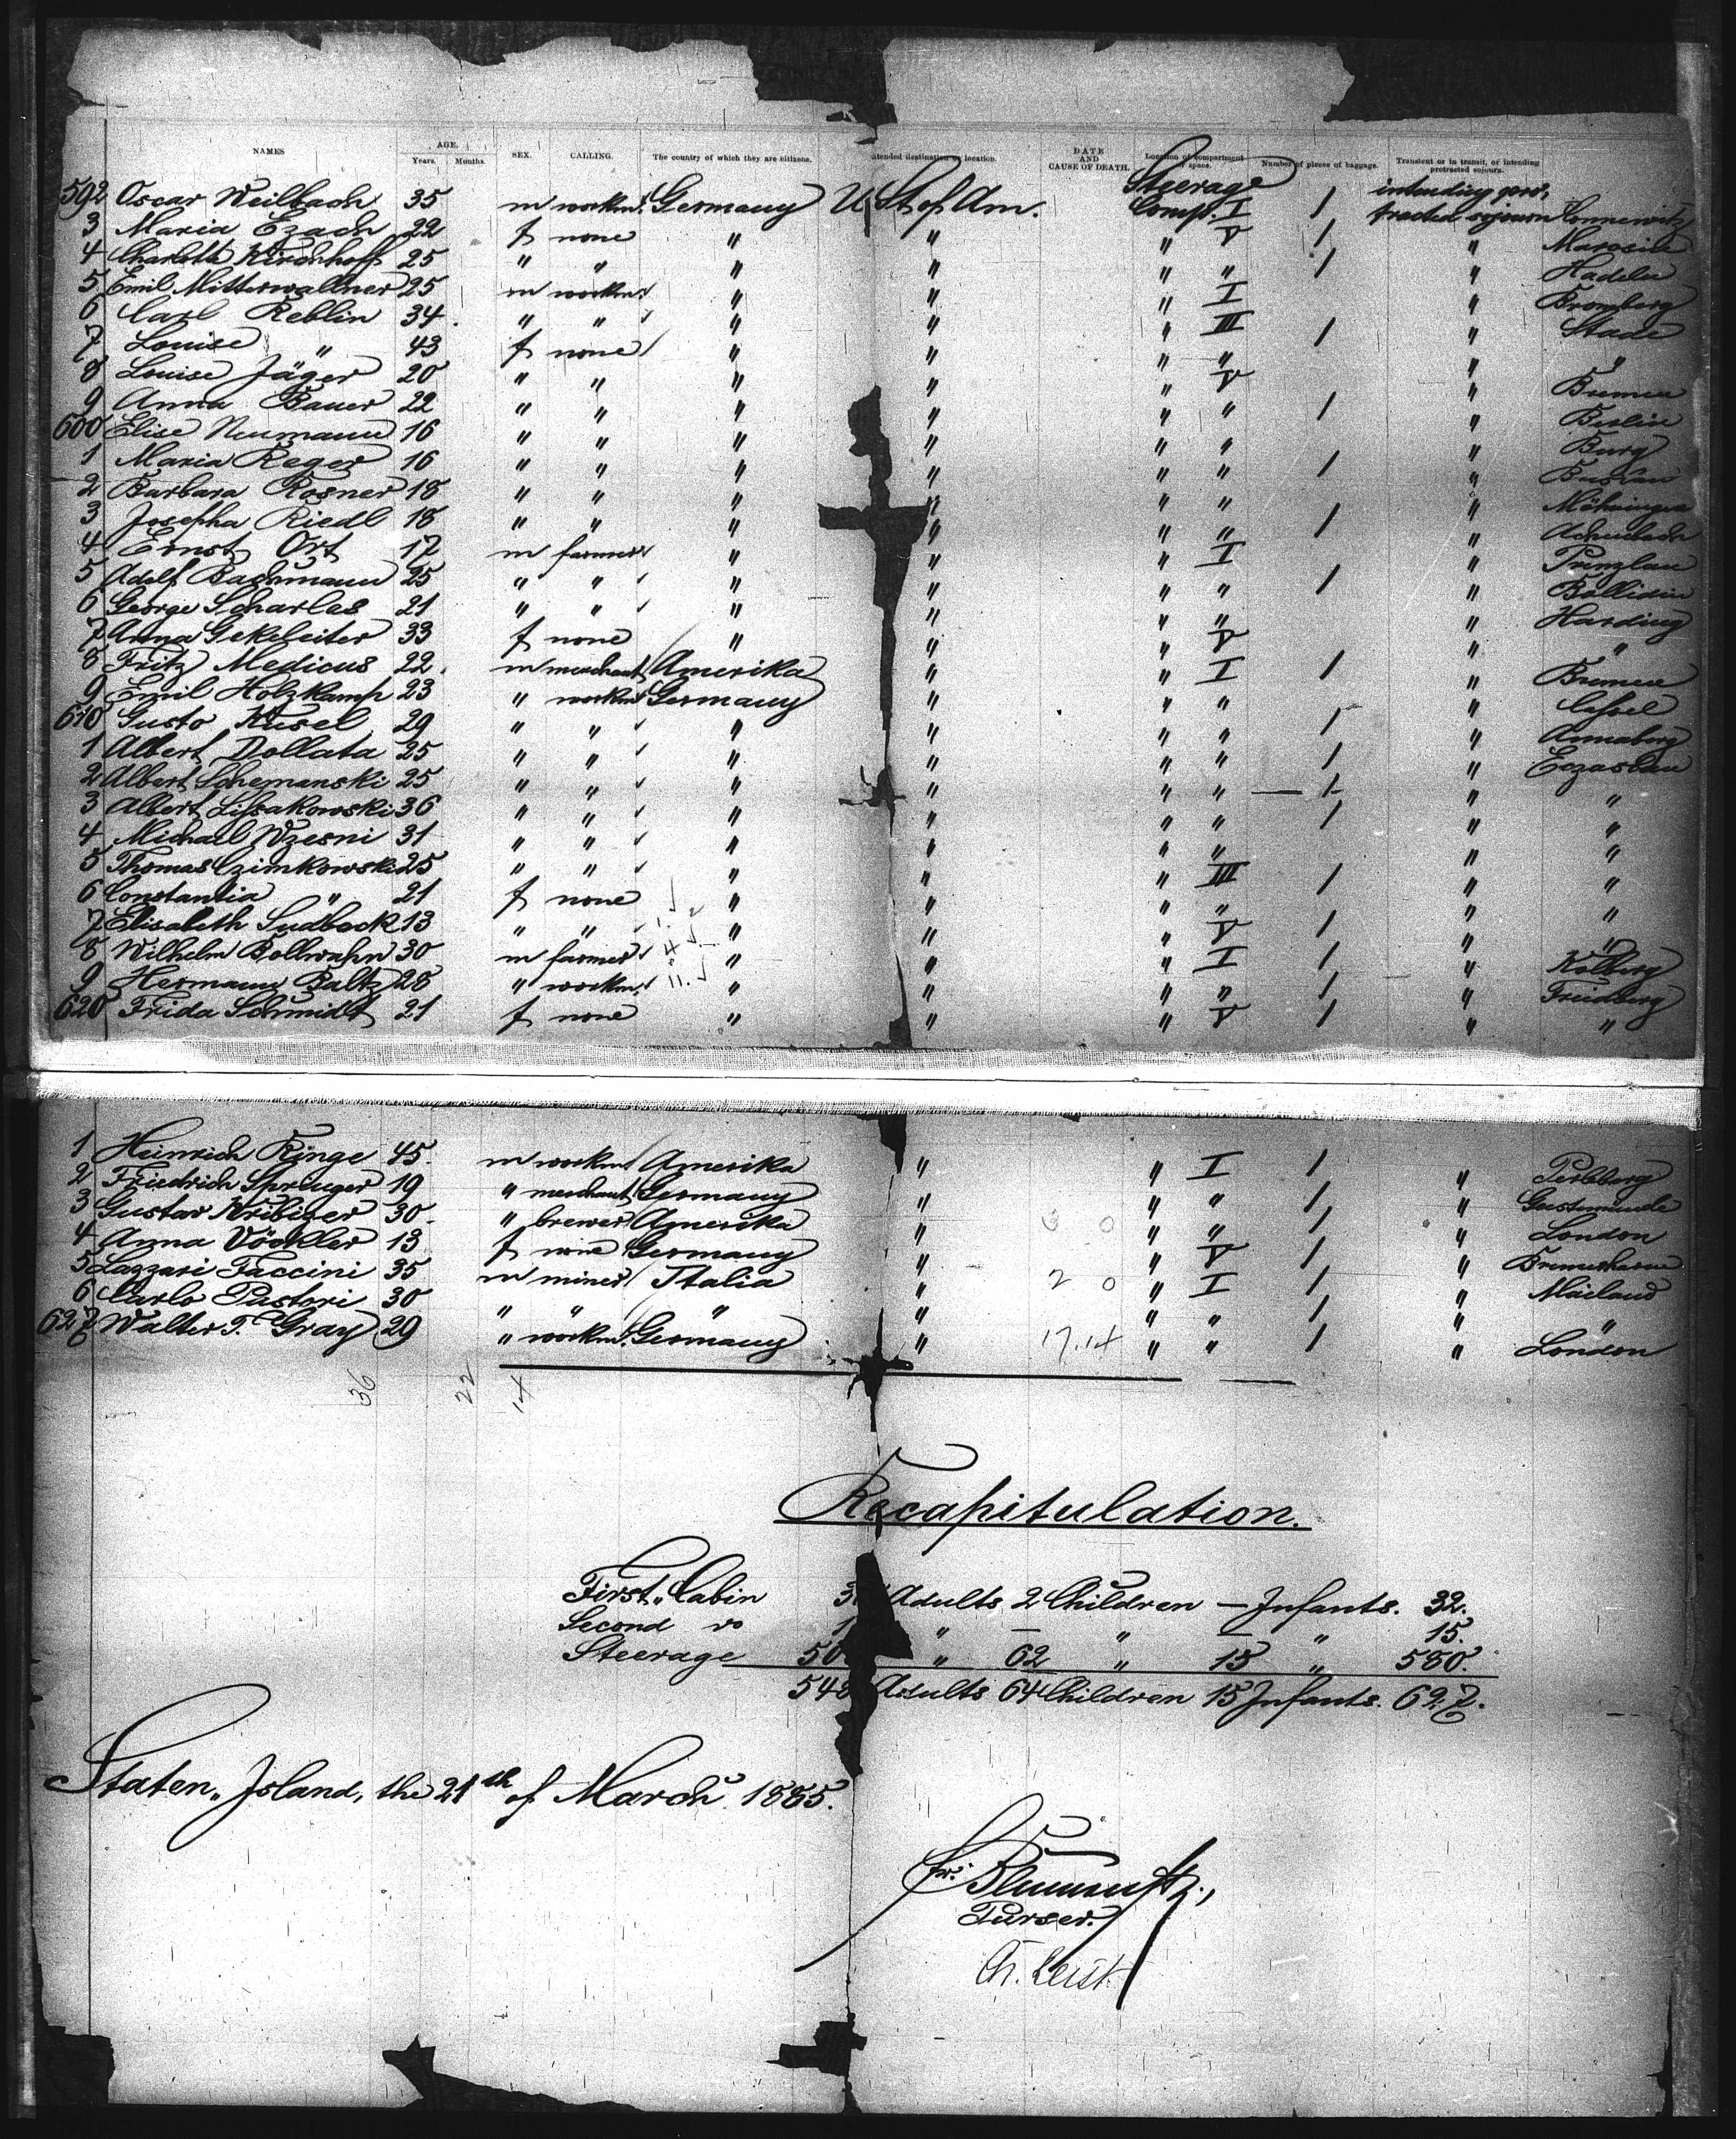 NAMES AGE. Years. Months. SEX. CALLING. The country of which they are citizens. Intended destination or location. DATE AND CAUSE OF DEATH. Location of compartment or space. Number of pieces of baggage. Transient or in transit, or intending protracted sojourn.
592 Oscar Weilbach 35 m workm. Germany U. St. of Am. Steerage Comp. I / intending protracted sojourn Connewitz
3 Maria Czach 22 f none " " " V / "
4 Charlotte Kirchhoff 25 " " " " " " / " Hadeln
5 Emil Mitterwallner 25 m workm. " " " I " Bromberg
6 Carl Reblin 34 " " " " " III / " Stade
7 Louise " 43 f none " " " " " "
8 Louise Jäger 20 " " " " " V " Bremen
9 Anna Bauer 22 " " " " " " / " Berlin
600 Elise Neumann 16 " " " " " " " Burg
1 Maria Reger 16 " " " " " " / "
2 Barbara Rosner 18 " " " " " " " Möhringen
3 Josepha Riedl 18 " " " " " " / "
4 Ernst Ort 17 m farmer " " " I " Prenzlau
5 Adolf Bachmann 25 " " " " " " / "
6 George Scharles 21 " " " " " " " Harding
7 Anna Gekeleiter 33 f none " " " V " "
8 Fritz Medicus 22 m merchant Amerika " " I / " Bremen
9 Emil Holzkamp 23 " workm. Germany " " " " Cassel
610 Gusto Kusel 29 " " " " " " / " Annaberg
1 Albert Dollata 25 " " " " " " / "
2 Albert Schemanski 25 " " " " " " / " "
3 Albert Lissakowski 36 " " " " " " / " "
4 Michael Wzesni 31 " " " " " " " "
5 Thomas Czimkowski 25 " " " " " III / " "
6 Constantia " 21 f none " " " " " "
7 Elisabeth Sudbeck 13 " " " " " V / " "
8 Wilhelm Bollwahn 30 m farmer " " " I / " Kolberg
9 Hermann Baltz 28 " workm. " " " " / " Friedberg
620 Frida Schmidt 21 f none " " " V / " "
1 Heinrich Ringe 45 m workm. Amerika " " I / " Perleberg
2 Friedrich Sprenger 19 " merchant Germany " " " / " Geestemünde
3 Gustav Kribizer 30 " brewer Amerika " " " / " London
4 Anna Vöckler 13 f none Germany " " V / " Bremerhaven
5 Lazzari Faccini 35 m miner Italia " 2 0 " I / " Mailand
6 Carlo Pastori 30 " " " " " " / " "
627 Walter T. Gray 29 " workm. Germany " 17.14 " " / " London
36 22 14
Recapitulation.
First Cabin 3 Adults 2 Children — Infants. 32.
Second do 1 " — " — " 15.
Steerage 50 " 62 " 15 " 580.
548 Adults 64 Children 15 Infants. 627.
Staten Island, the 21th of March 1885.
Purser.
Ch. Leist